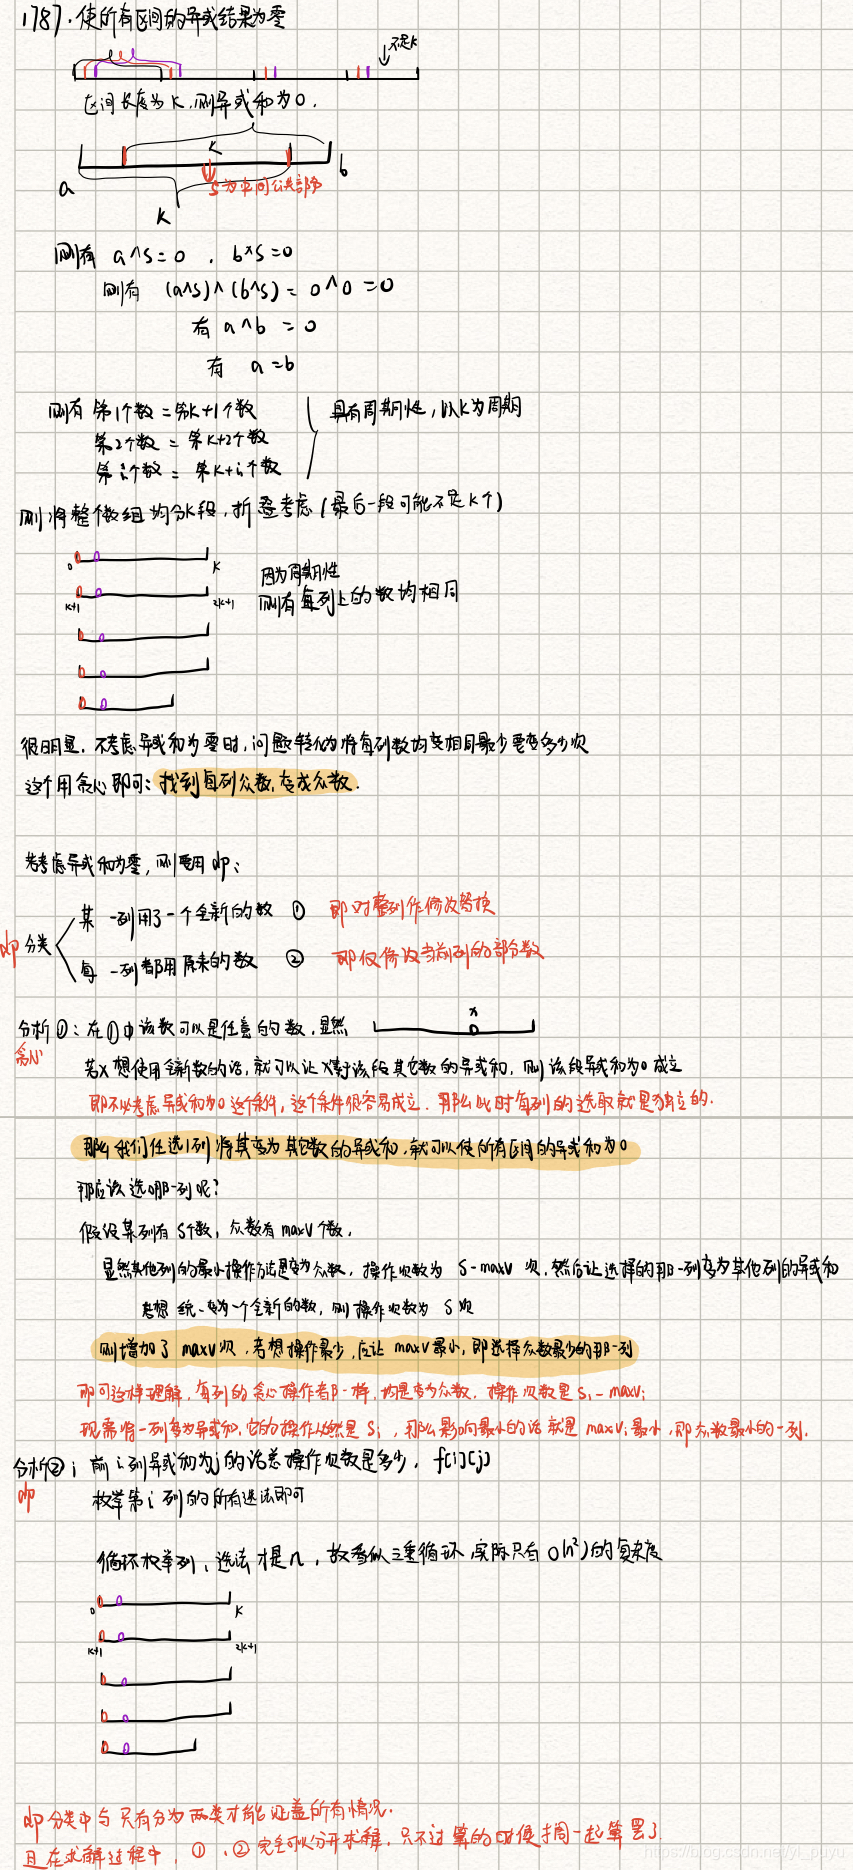 1787. 使所有区间的异或结果为零
不足K
区间长度为K,则异或和为0.
K
a
b
S为中间公共部分
K
则有 a^s=0 . b^s=0
则有 (a^s)^(b^s)=0^0=0
有 a^b=0
有 a=b
则有 第1个数=第K+1个数
第2个数=第K+2个数
第i个数=第K+i个数
具有周期性,以K为周期
则将整个数组均分K段,折叠考虑(最后一段可能不足K个)
0
K
因为周期性
K+1
2K+1
则有每列上的数均相同
很明显,不考虑异或和为零时,问题转化为将每列数均变相同最少要变多少次
这个用贪心即可:找到每列众数,变成众数.
若考虑异或和为零,则要用dp:
dp分类
某一列用了一个全新的数 ① 即对整列作修改替换
每一列都用原来的数 ② 即仅修改当前列的部分数
x
分析①:在①中该数可以是任意的数,显然
贪心
若x想使用全新数的话,就可以让x等于该段其它数的异或和,则该段异或和为0成立
即不必考虑异或和为0这个条件,这个条件很容易成立.那么此时每列的选取就是独立的.
那么我们任选1列将其变为其它数的异或和,就可以使所有区间的异或和为0
那应该选哪一列呢?
假设某列有S个数,众数有maxV个数,
显然其他列的最小操作方法是变为众数,操作次数为 S-maxV 次,然后让选择的那一列变为其他列的异或和
若想统一变为一个全新的数,则操作次数为 S次
则增加了 maxV次,若想操作最少,应让 maxV最小,即选择众数最少的那一列
即可这样理解,每列的贪心操作都一样,均是变为众数,操作次数是 Si-maxVi
现需将一列变为异或和,它的操作必然是Si,那么影响最小的话就是 maxVi最小,即众数最小的一列.
分析②:前i列异或和为j的话总操作次数是多少, f[i][j]
dp
枚举第i列的所有选法即可
循环枚举列,选法才是n,故看似三重循环,实际只有O(n²)的复杂度
0
K
K+1
2K+1
dp分类中与只有分为两类才能涵盖所有情况.
且在求解过程中,①、②完全可以分开求解,只不过算的时候搞一起算罢了.
https://blog.csdn.net/yl_puyu